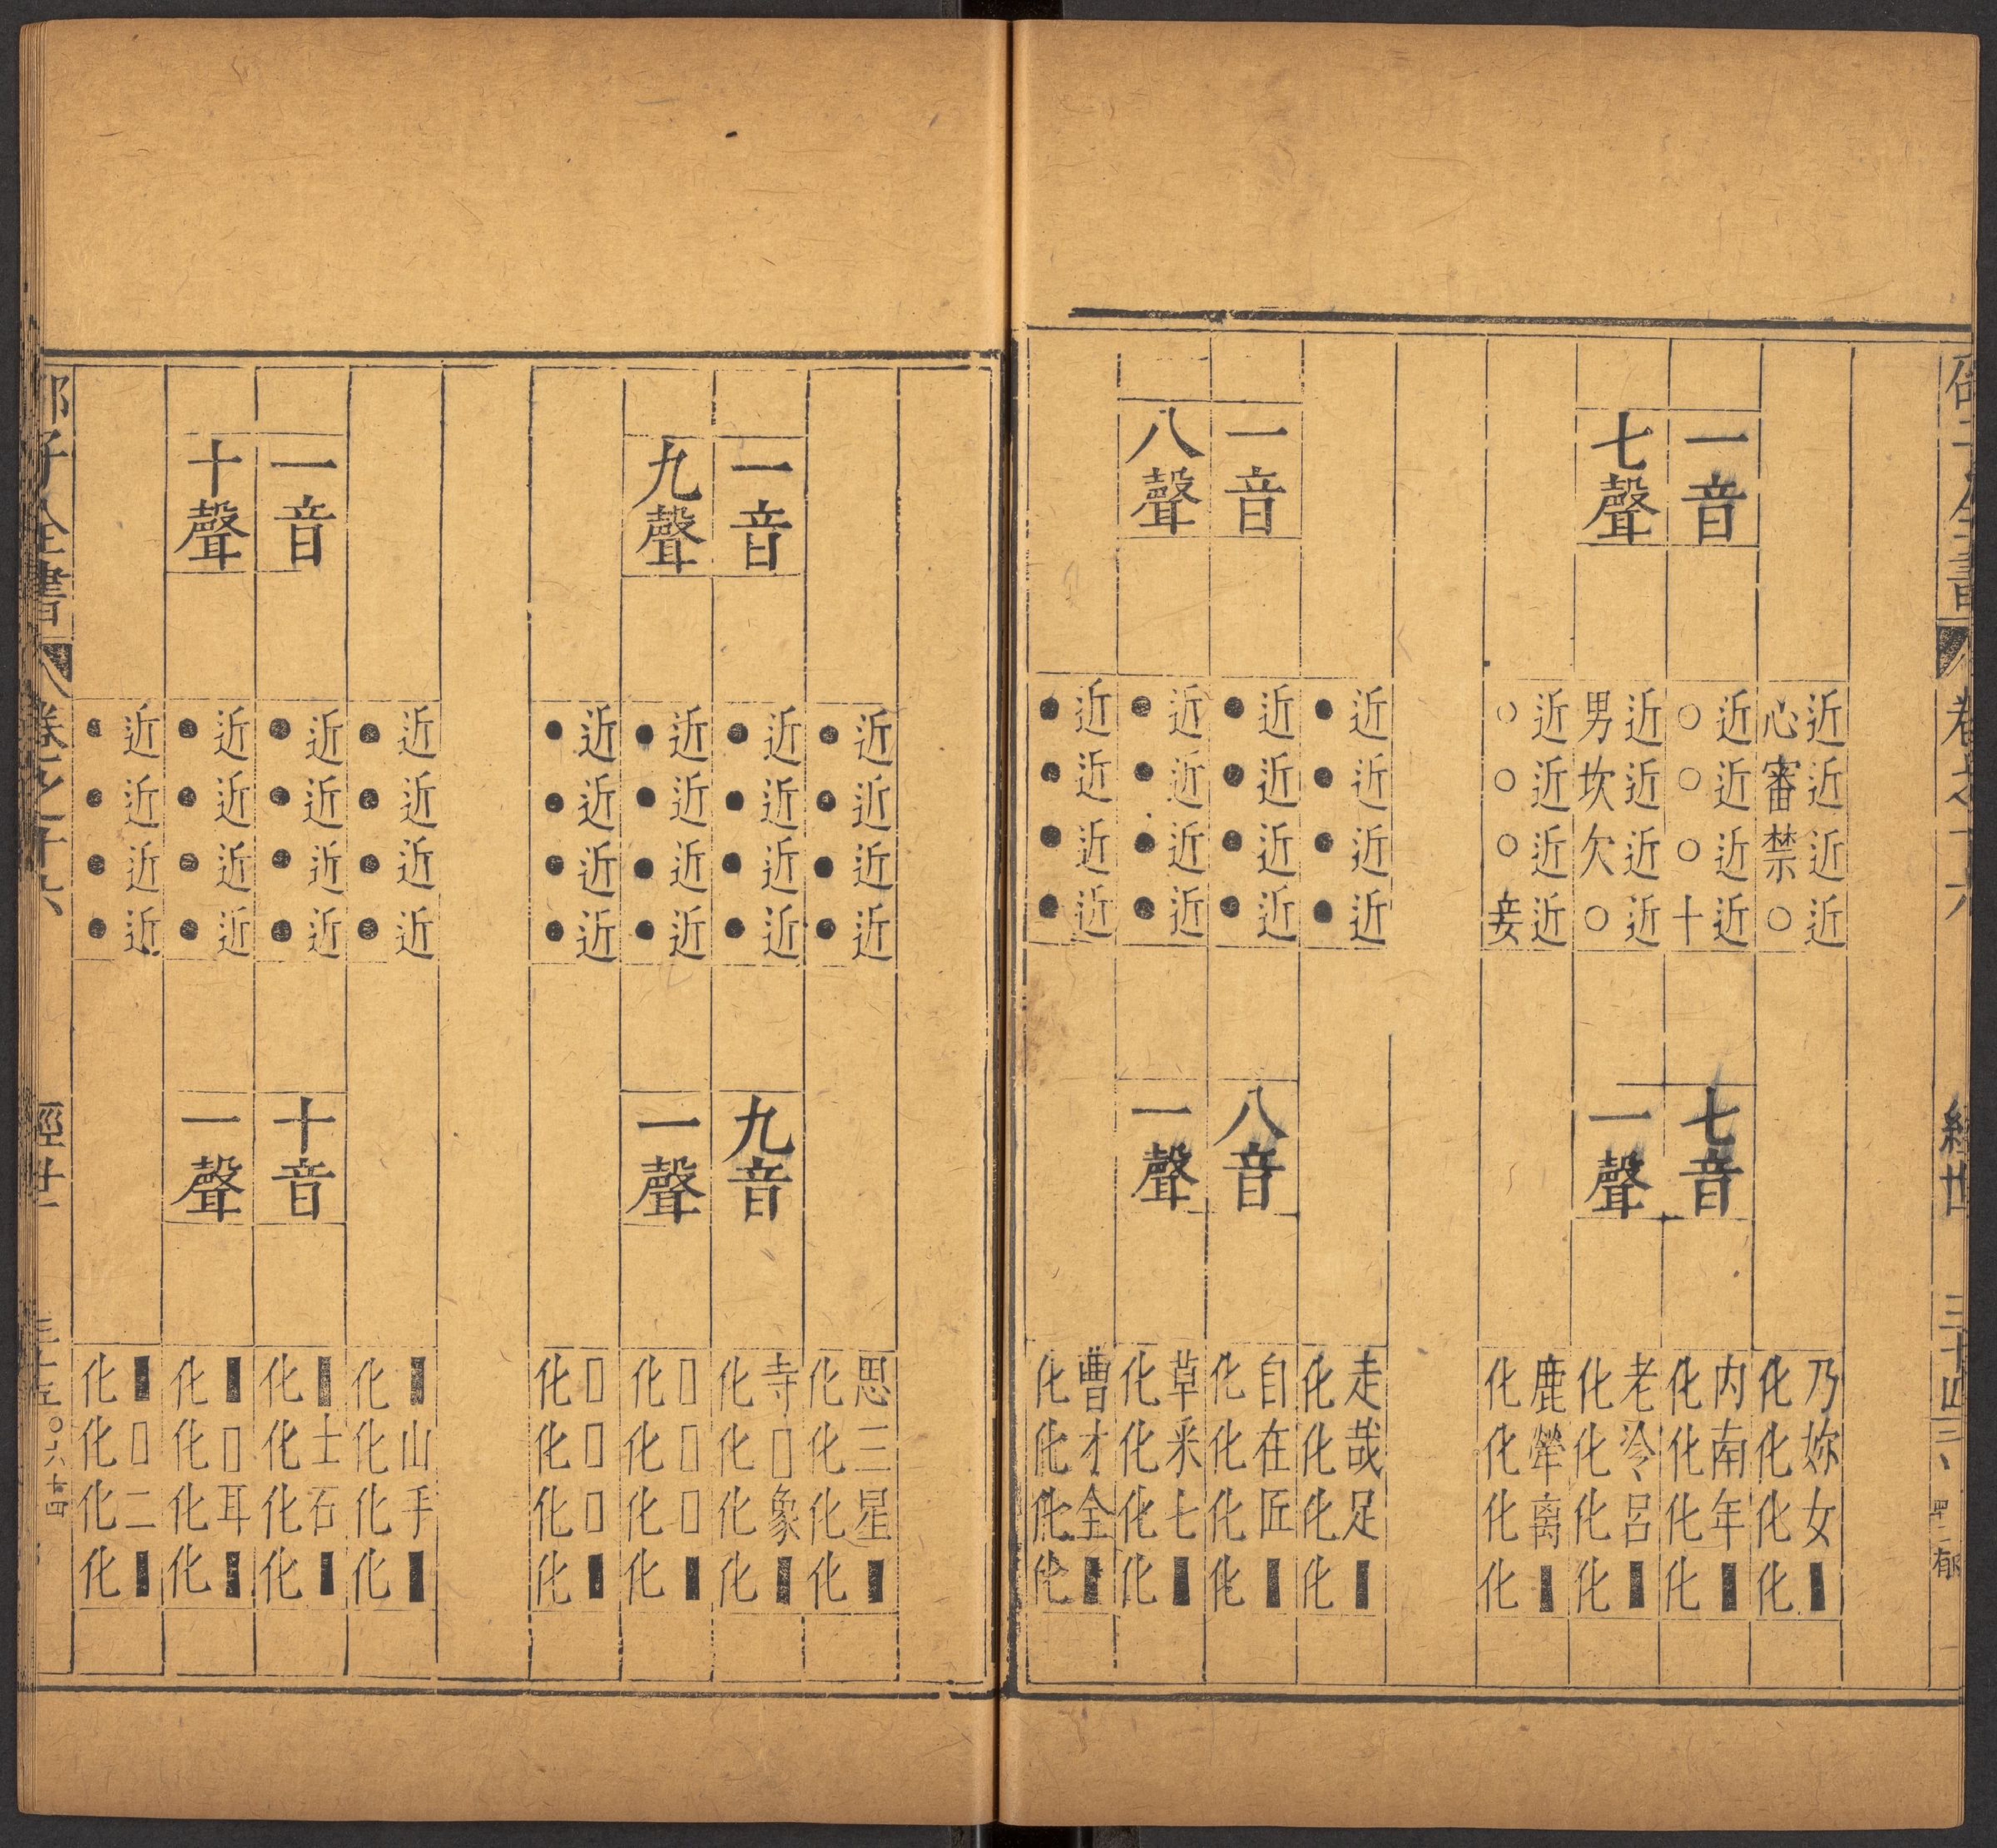 卷之十六 經世 三十四
一音
七聲
近近近近
心審禁○
近近近近
○○○十
近近近近
男坎欠○
近近近近
○○○妾
七音
一聲
乃妳女■
化化化化
内南年■
化化化化
老冷呂■
化化化化
鹿犖离■
化化化化
一音
八聲
近近近近
●●●●
近近近近
●●●●
近近近近
●●●●
近近近近
●●●●
八音
一聲
走哉足■
化化化化
自在匠■
化化化化
草采七■
化化化化
曹才全■
化化化化
一音
九聲
近近近近
●●●●
近近近近
●●●●
近近近近
●●●●
近近近近
●●●●
九音
一聲
思三星■
化化化化
寺□象■
化化化化
□□□■
化化化化
□□□■
化化化化
一音
十聲
近近近近
●●●●
近近近近
●●●●
近近近近
●●●●
近近近近
●●●●
十音
一聲
■山手■
化化化化
■士石■
化化化化
■□耳■
化化化化
■□二■
化化化化
邵子全書 卷之十六 經世 三十五